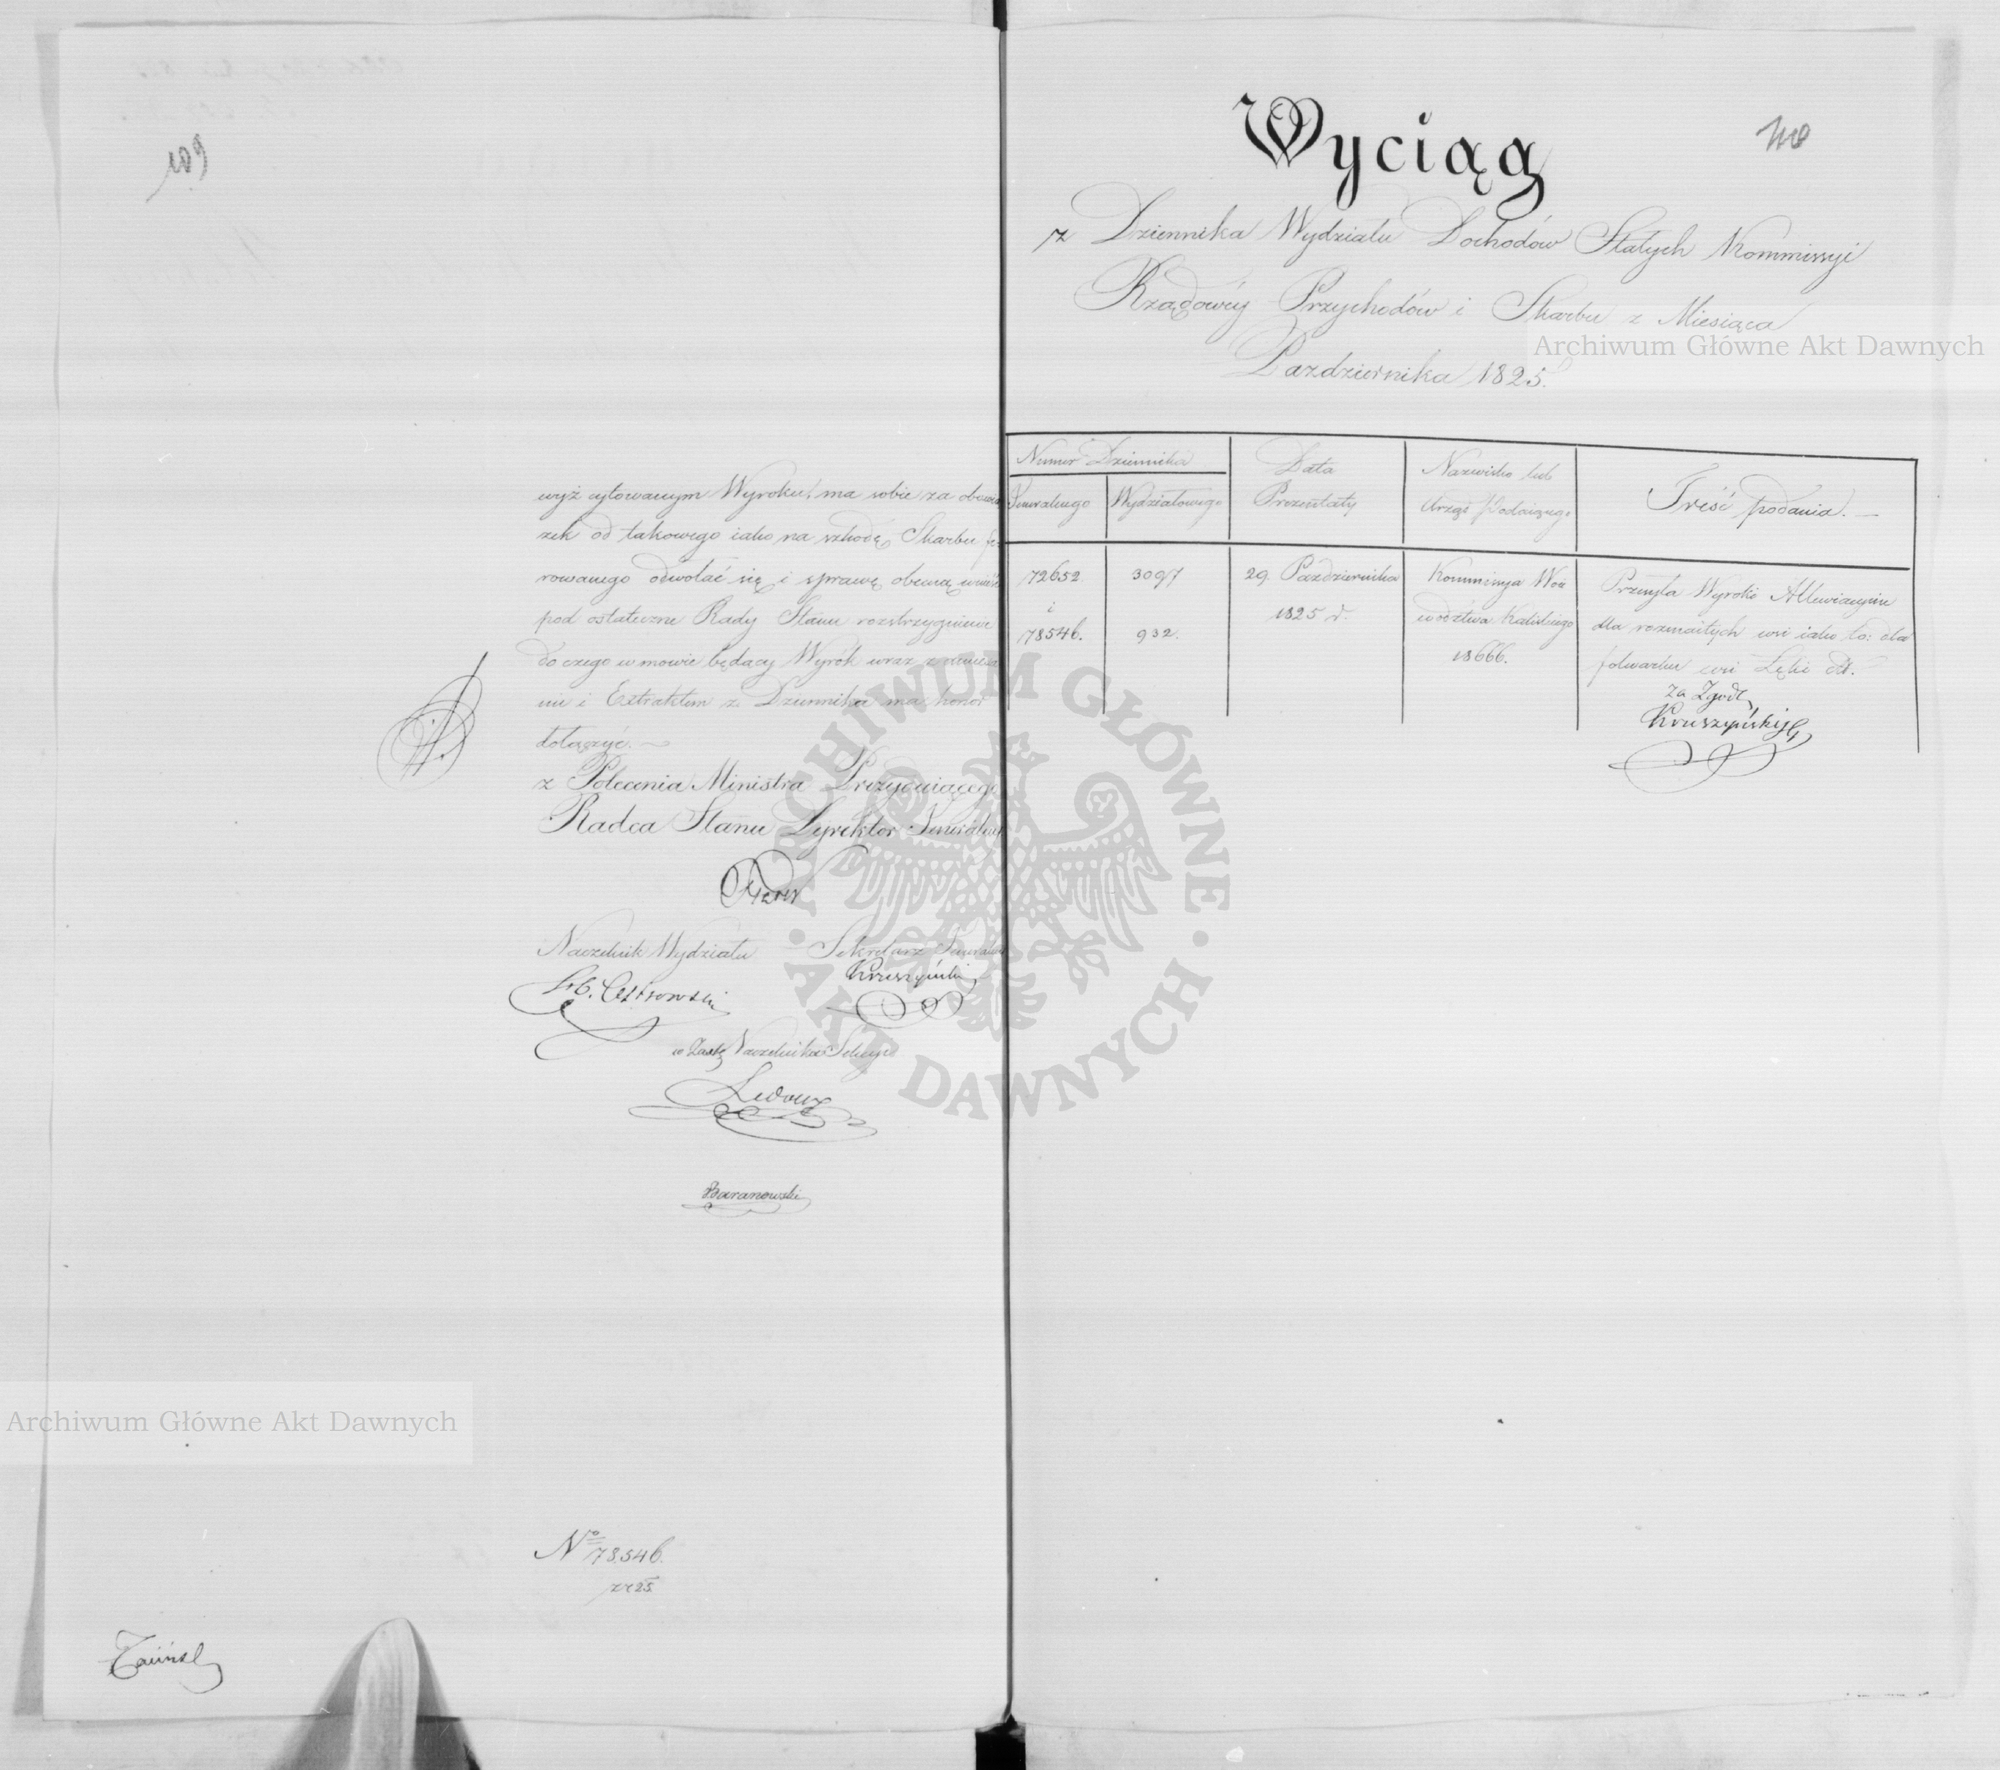 109
wyż cytowanym Wyroku, ma sobie za obowią
zek od takowego iako na szkodę Skarbu fe-
rowanego odwołać się i sprawę obecną wnieść
pod ostateczne Rady Stanu rozstrzygnienie
do czego w mowie będący Wyrok wraz z
nie i Extraktem z Dziennika ma honor
dołączyć. —
z Polecenia Ministra Prezyduiącego
Radca Stanu Dyrektor Jeneralny
Naczelnik Wydziału Sekretarz Jeneralny
Kruszyński
w Zastę Naczelnika Sekcyi
Ledoux
Baranowski
No 78546.
z r 25
110
Wyciąg
z Dziennika Wydziału Dochodów Stałych Kommissyi
Rządowéy Przychodów i Skarbu z Miesiąca
Pazdziernika 1825.
Numer Dziennika
Jeneralnego
Wydziałowego
Data
Prezentaty
Nazwisko lub
Urząd Podaiącego
Treść podania. —
72652
i
78546.
3097
932.
29. Pazdziernika
1825 r.
Kommissya Woie
wództwa Kaliskiego
18666.
Przesyła Wyroki Allewiacyine
dla rozmaitych wsi iako to: dla
folwarku wsi Lęki
Za Zgodę
Kruszyński
Archiwum Główne Akt Dawnych
Archiwum Główne Akt Dawnych
ARCHIWUM GŁÓWNE
AKT DAWNYCH